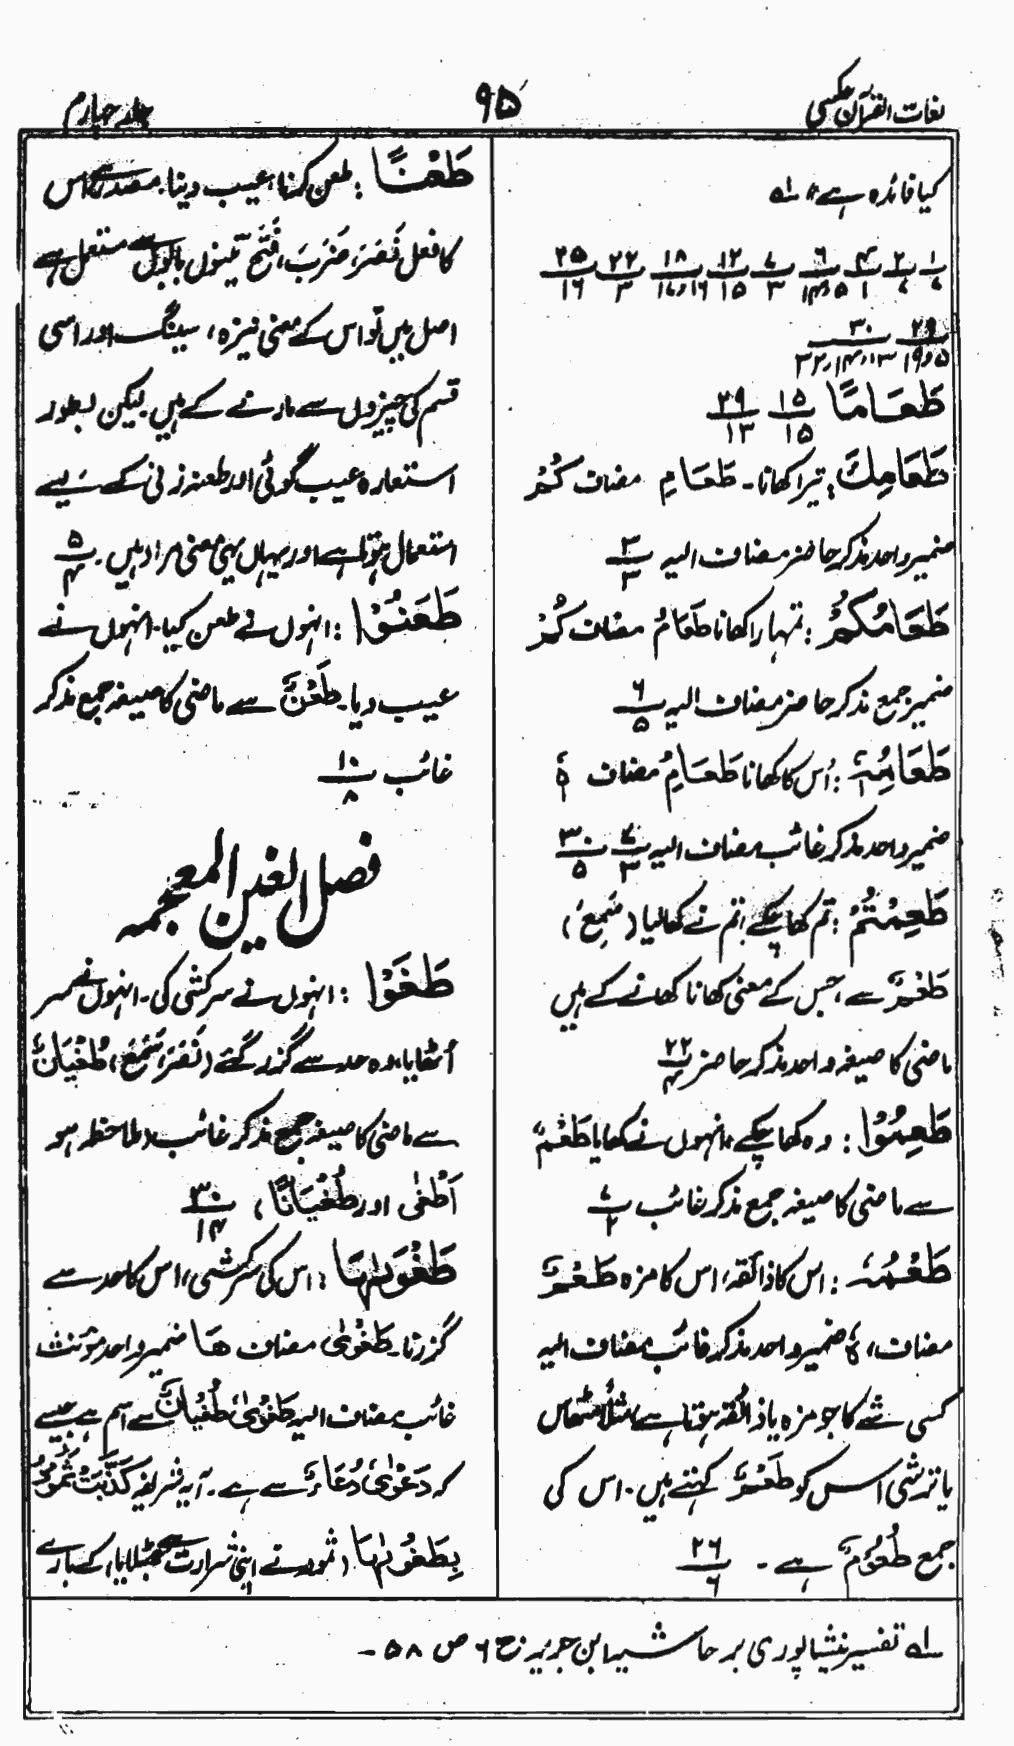 لغات القرآن عکسی
۹۵
جلد چہارم
کیا فائدہ ہے؟ ؎۱
۱/۷ ۲/۷ ۴/۱ ۶/۵ و ۱۴ ۷/۳ ۱۲/۱۵ ۱۸/۱۶ و ۱۷ ۲۲/۳ ۲۵/۱۶
۲۹/۵ و ۱۹ ۳۰/۱۳ و ۱۴ و ۳۲
طَعَامًا ۱۵/۱۵ ۲۹/۱۳
طَعَامِكَ: تیرا کھانا۔ طَعَامِ مضاف كُمْ
ضمیر واحد مذکر حاضر مضاف الیہ ۳/۳
طَعَامُكُمْ: تمہارا کھانا طَعَامُ مضاف كُمْ
ضمیر جمع مذکر حاضر مضاف الیہ ۶/۵
طَعَامِہٖ: اُس کا کھانا طَعَامِ مضاف ہٗ
ضمیر واحد مذکر غائب مضاف الیہ ۷/۳ ۳۰/۵
طَعِمْتُمْ: تم کھا چکے، تم نے کھالیا (سَمِعَ)
طَعْمٌ سے، جس کے معنی کھانا کھانے کے ہیں
ماضی کا صیغہ واحد مذکر حاضر ۲۲/۴
طَعِمُوْا: وہ کھا چکے، انہوں نے کھایا طَعْمٌ
سے ماضی کا صیغہ جمع مذکر غائب ۷/۲
طَعْمُہٗ: اس کا ذائقہ، اس کا مزہ طَعْمُ
مضاف، ہٗ ضمیر واحد مذکر غائب مضاف الیہ
کسی شے کا جو مزہ یا ذائقہ ہوتا ہے مثلاً مٹھاس
یا ترشی اس کو طَعْمٌ کہتے ہیں۔ اس کی
جمع طُعُوْمٌ ہے۔ ۲۶/۶
طَعْنًا: طعن کرنا، عیب دینا۔ مصدر ہے اس
کا فعل نَصَرَ، ضَرَبَ، فَتَحَ تینوں بابوں سے مستعمل ہے
اصل میں تو اس کے معنی نیزہ، سینگ اور اسی
قسم کی چیزوں سے مارنے کے ہیں لیکن بطور
استعارہ عیب گوئی اور طعنہ زنی کے لیے
استعمال ہوتا ہے اور یہاں یہی معنی مراد ہیں۔ ۵/۴
طَعَنُوْا: انہوں نے طعن کیا۔ انہوں نے
عیب دیا۔ طَعْنٌ سے ماضی کا صیغہ جمع مذکر
غائب ۱۰/۸
فصل الغین المعجمہ
طَغَوْا: انہوں نے سرکشی کی۔ انہوں نے سر
اُٹھایا، وہ حد سے گزر گئے (نَصَرَ، سَمِعَ) طُغْيَانٌ
سے ماضی کا صیغہ جمع مذکر غائب (ملاحظہ ہو
اَطْغٰی اور طُغْيَانًا) ۳۰/۱۴
طَغْوٰىہَا: اس کی سرکشی، اس کا حد سے
گزرنا۔ طَغْوٰی مضاف ھَا ضمیر واحد مؤنث
غائب مضاف الیہ طَغْوٰی طُغْيَانٌ سے اسم ہے جیسے
کہ دَعْوٰی دُعَاءٌ سے ہے۔ آیہ شریفہ كَذَّبَتْ ثَمُوْدُ
بِطَغْوٰىہَا (ثمود نے اپنی شرارت سے جھٹلایا) کے بارے
؎۱ تفسیر نیشاپوری بر حاشیہ ابن جریر ج ۶ ص ۵۸۔